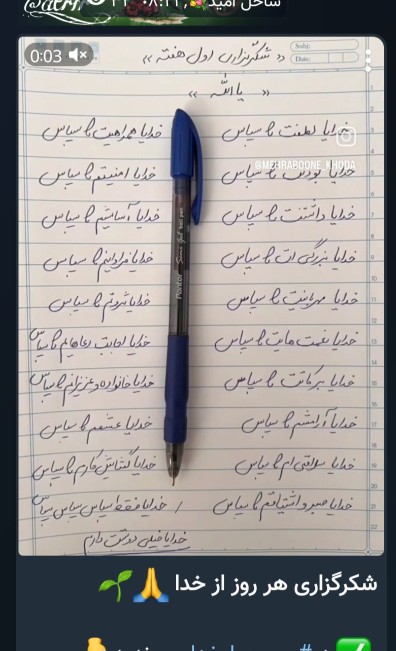 ساحل امید
0:03
Subj:
Date:
«« شکرگزاری اول هفته »»
« یا الله »
خدایا لطفت را سپاس
خدایا همراهیت را سپاس
@MEHRABOONE_KHODA
خدایا بودنت را سپاس
خدایا امنیتم را سپاس
خدایا داشتنت را سپاس
خدایا آسایشم را سپاس
خدایا بزرگی ات را سپاس
خدایا فراوانیم را سپاس
خدایا مهربانیت را سپاس
خدایا ثروتم را سپاس
خدایا نعمت هایت را سپاس
خدایا اجابت دعاهایم را سپاس
خدایا برکاتت را سپاس
خدایا خانواده و عزیزانم را سپاس
خدایا آرامشم را سپاس
خدایا عشقم را سپاس
خدایا سلامتی ام را سپاس
خدایا گشایش کارم را سپاس
خدایا صبر و اشتیاقم را سپاس
خدایا فقط سپاس سپاس سپاس
خدایا خیلی دوستت دارم
شکرگزاری هر روز از خدا